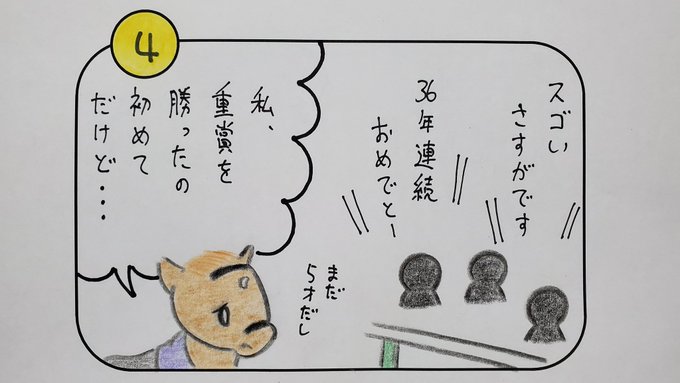 4
スゴい
さすがです
36年連続
おめでとー
私、
重賞を
勝ったの
初めて
だけど・・・
まだ
5才だし